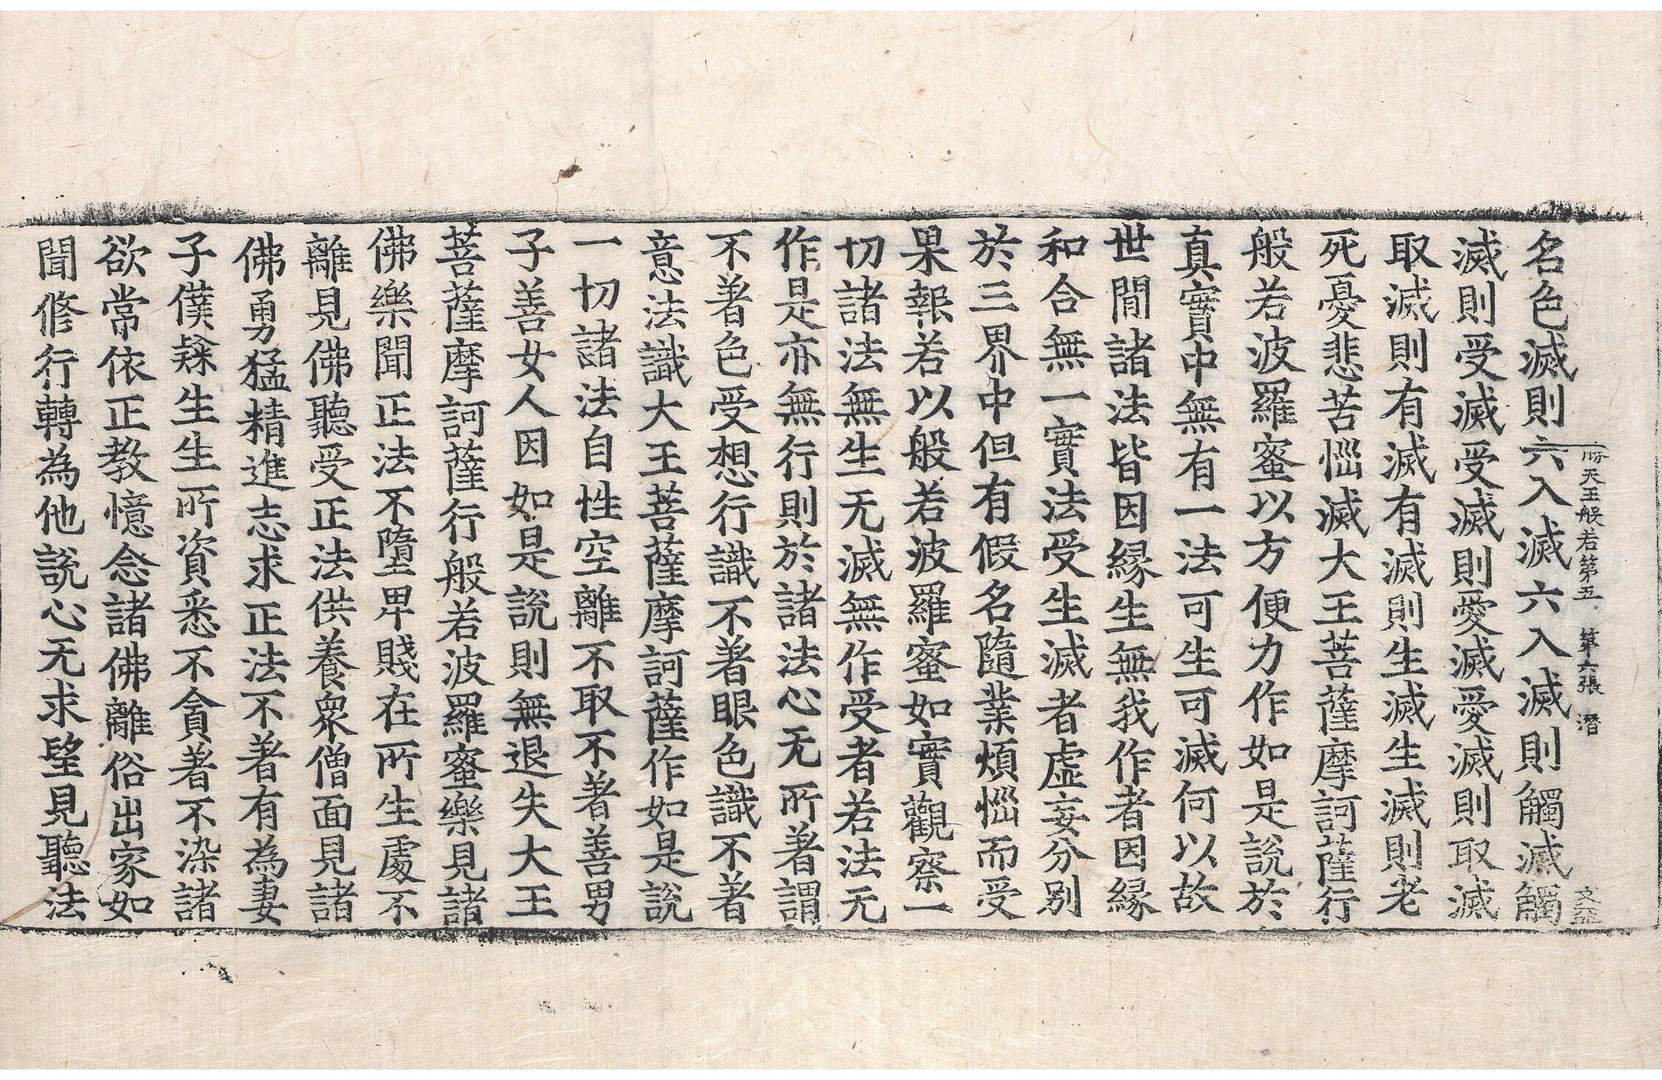 勝天王般若第五　第六張　潛
文益
名色滅則六入滅六入滅則觸滅觸
滅則受滅受滅則愛滅愛滅則取滅
取滅則有滅有滅則生滅生滅則老
死憂悲苦惱滅大王菩薩摩訶薩行
般若波羅蜜以方便力作如是說於
真實中無有一法可生可滅何以故
世間諸法皆因緣生無我作者因緣
和合無一實法受生滅者虛妄分別
於三界中但有假名隨業煩惱而受
果報若以般若波羅蜜如實觀察一
切諸法無生无滅無作受者若法无
作是亦無行則於諸法心无所著謂
不著色受想行識不著眼色識不著
意法識大王菩薩摩訶薩作如是說
一切諸法自性空離不取不著善男
子善女人因如是說則無退失大王
菩薩摩訶薩行般若波羅蜜樂見諸
佛樂聞正法不墮卑賤在所生處不
離見佛聽受正法供養衆僧面見諸
佛勇猛精進志求正法不著有為妻
子僕隸生生所資悉不貪著不染諸
欲常依正教憶念諸佛離俗出家如
聞修行轉為他說心无求望見聽法